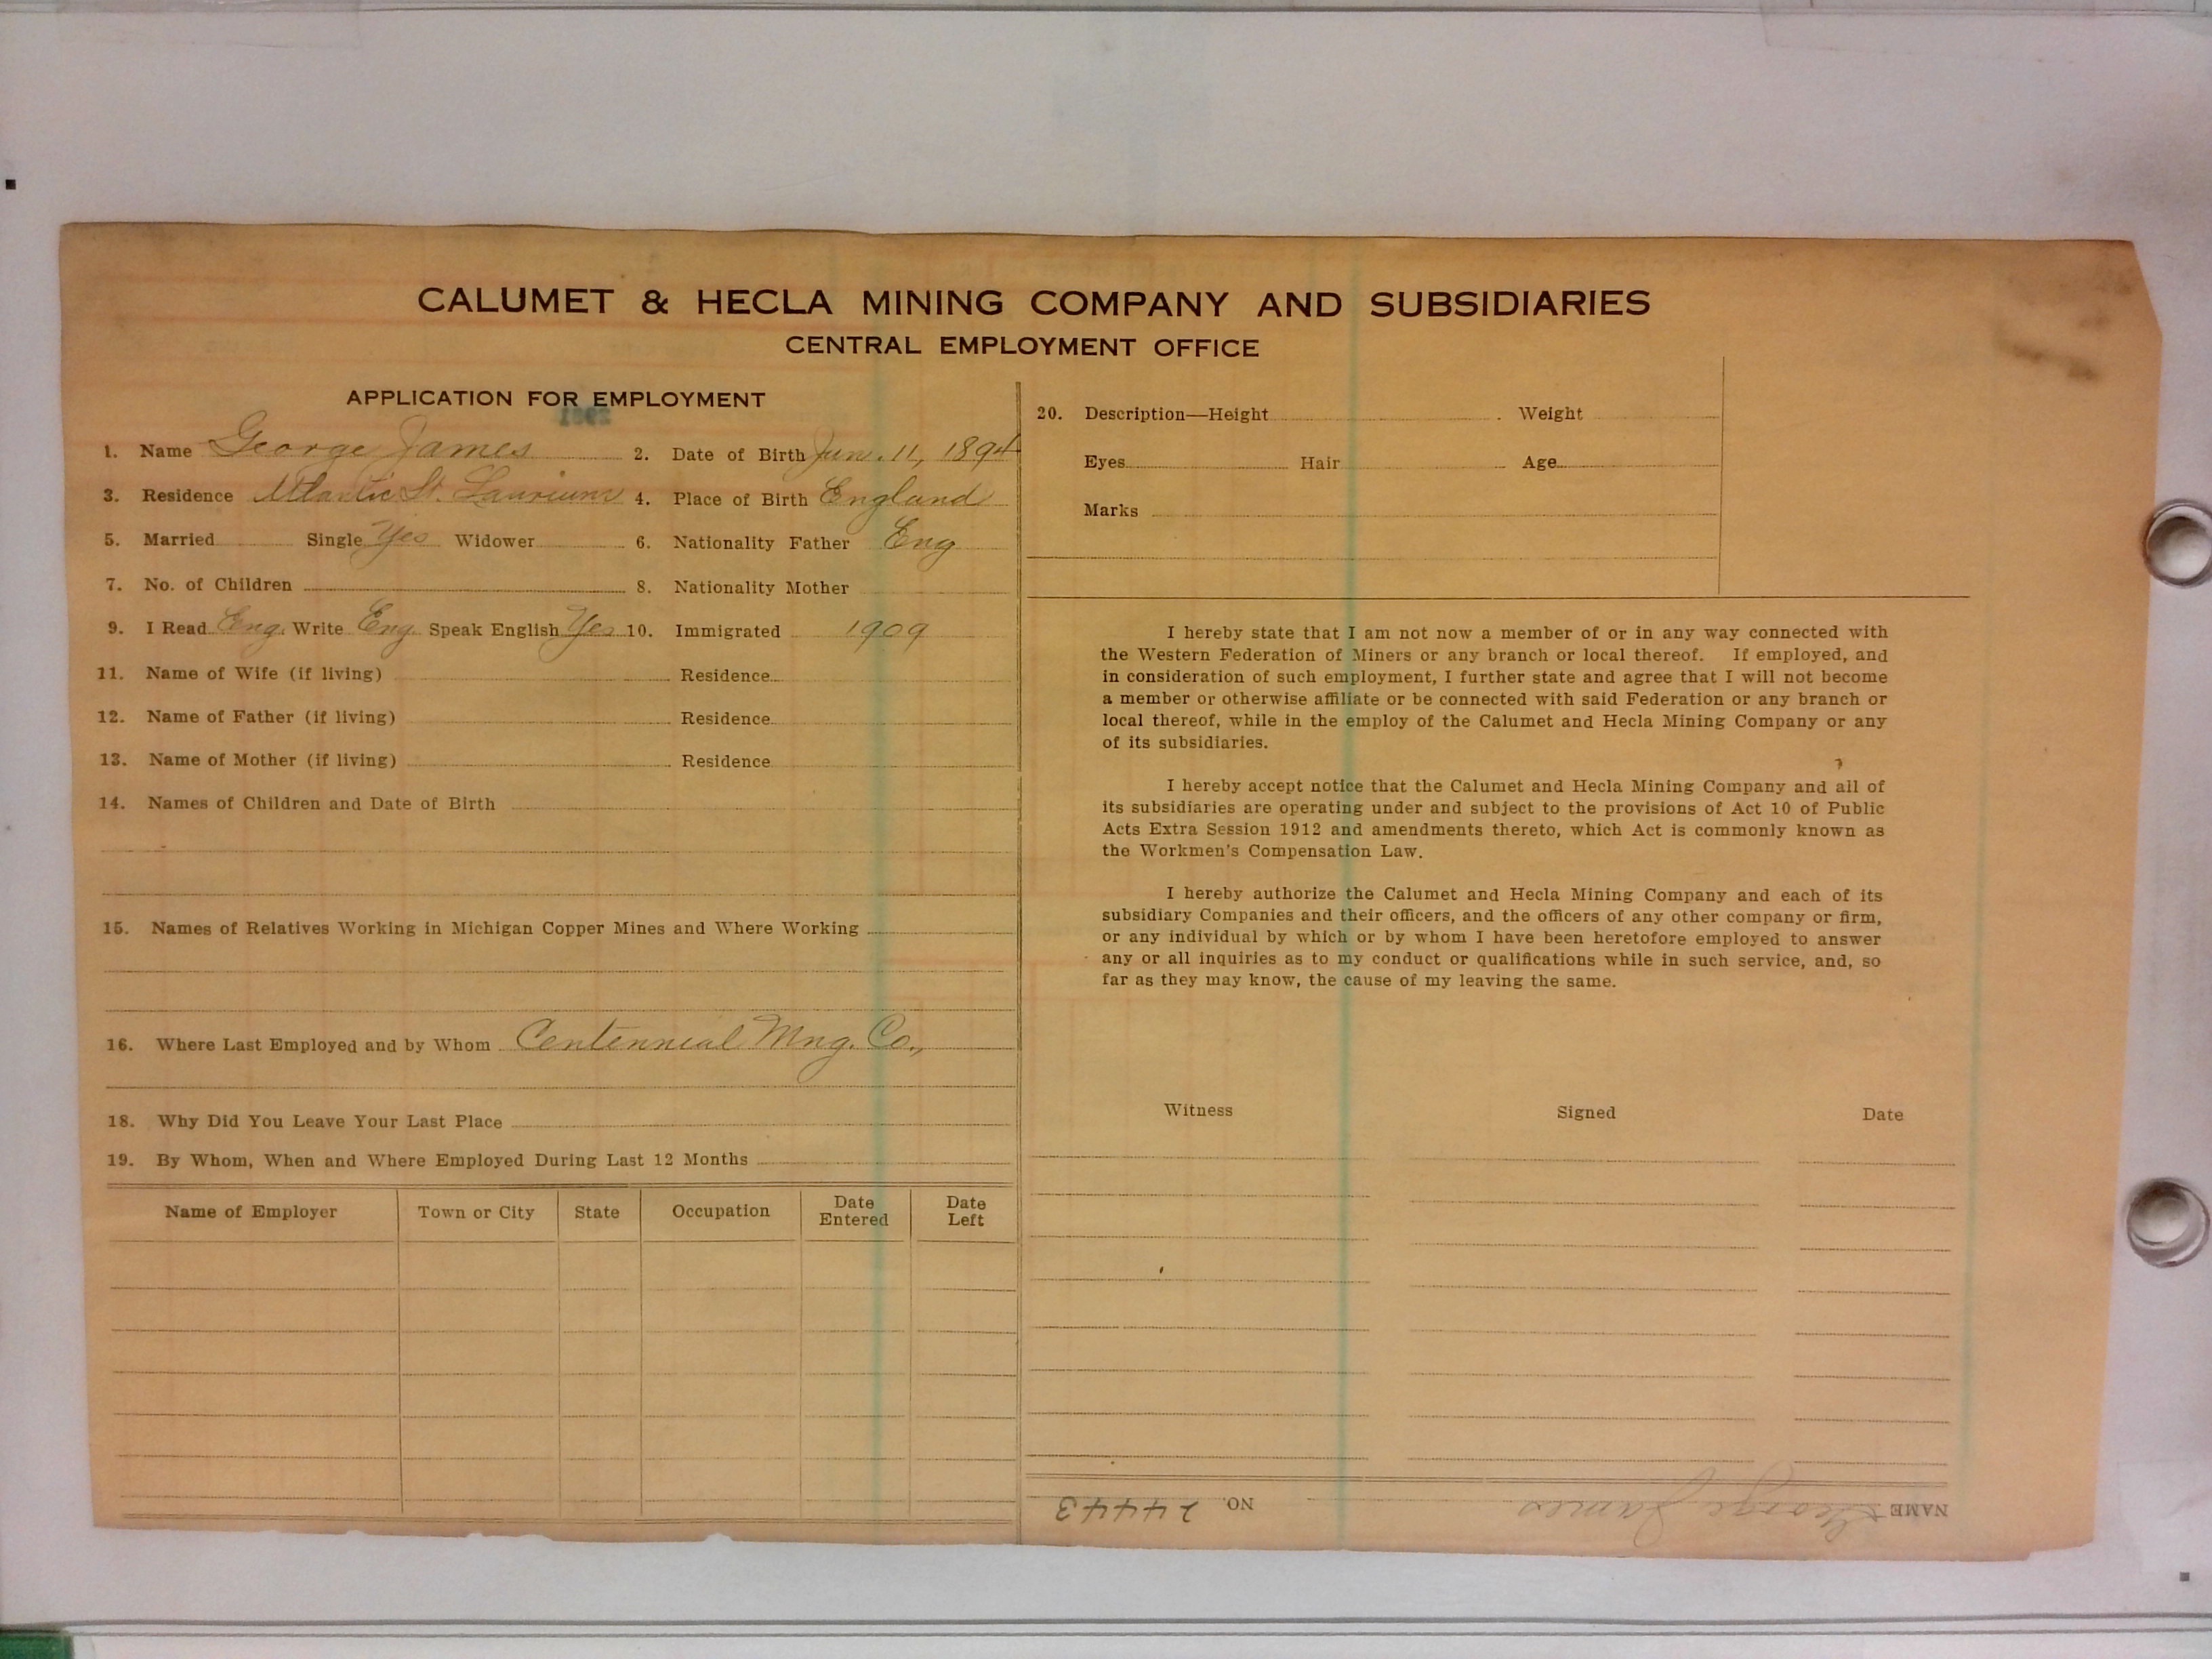 CALUMET & HECLA MINING COMPANY AND SUBSIDIARIES
CENTRAL EMPLOYMENT OFFICE
APPLICATION FOR EMPLOYMENT
1. Name George James 2. Date of Birth Jun. 11, 1894
3. Residence Atlantic St. Laurium 4. Place of Birth England
5. Married Single Yes Widower 6. Nationality Father Eng
7. No. of Children 8. Nationality Mother
9. I Read Eng. Write Eng. Speak English Yes 10. Immigrated 1909
11. Name of Wife (if living) Residence
12. Name of Father (if living) Residence
13. Name of Mother (if living) Residence
14. Names of Children and Date of Birth
15. Names of Relatives Working in Michigan Copper Mines and Where Working
16. Where Last Employed and by Whom Centennial Mng. Co.,
18. Why Did You Leave Your Last Place
19. By Whom, When and Where Employed During Last 12 Months
Name of Employer Town or City State Occupation Date Entered Date Left
20. Description—Height Weight
Eyes Hair Age
Marks
I hereby state that I am not now a member of or in any way connected with
the Western Federation of Miners or any branch or local thereof. If employed, and
in consideration of such employment, I further state and agree that I will not become
a member or otherwise affiliate or be connected with said Federation or any branch or
local thereof, while in the employ of the Calumet and Hecla Mining Company or any
of its subsidiaries.
I hereby accept notice that the Calumet and Hecla Mining Company and all of
its subsidiaries are operating under and subject to the provisions of Act 10 of Public
Acts Extra Session 1912 and amendments thereto, which Act is commonly known as
the Workmen's Compensation Law.
I hereby authorize the Calumet and Hecla Mining Company and each of its
subsidiary Companies and their officers, and the officers of any other company or firm,
or any individual by which or by whom I have been heretofore employed to answer
any or all inquiries as to my conduct or qualifications while in such service, and, so
far as they may know, the cause of my leaving the same.
Witness Signed Date
NAME George James NO. 24443